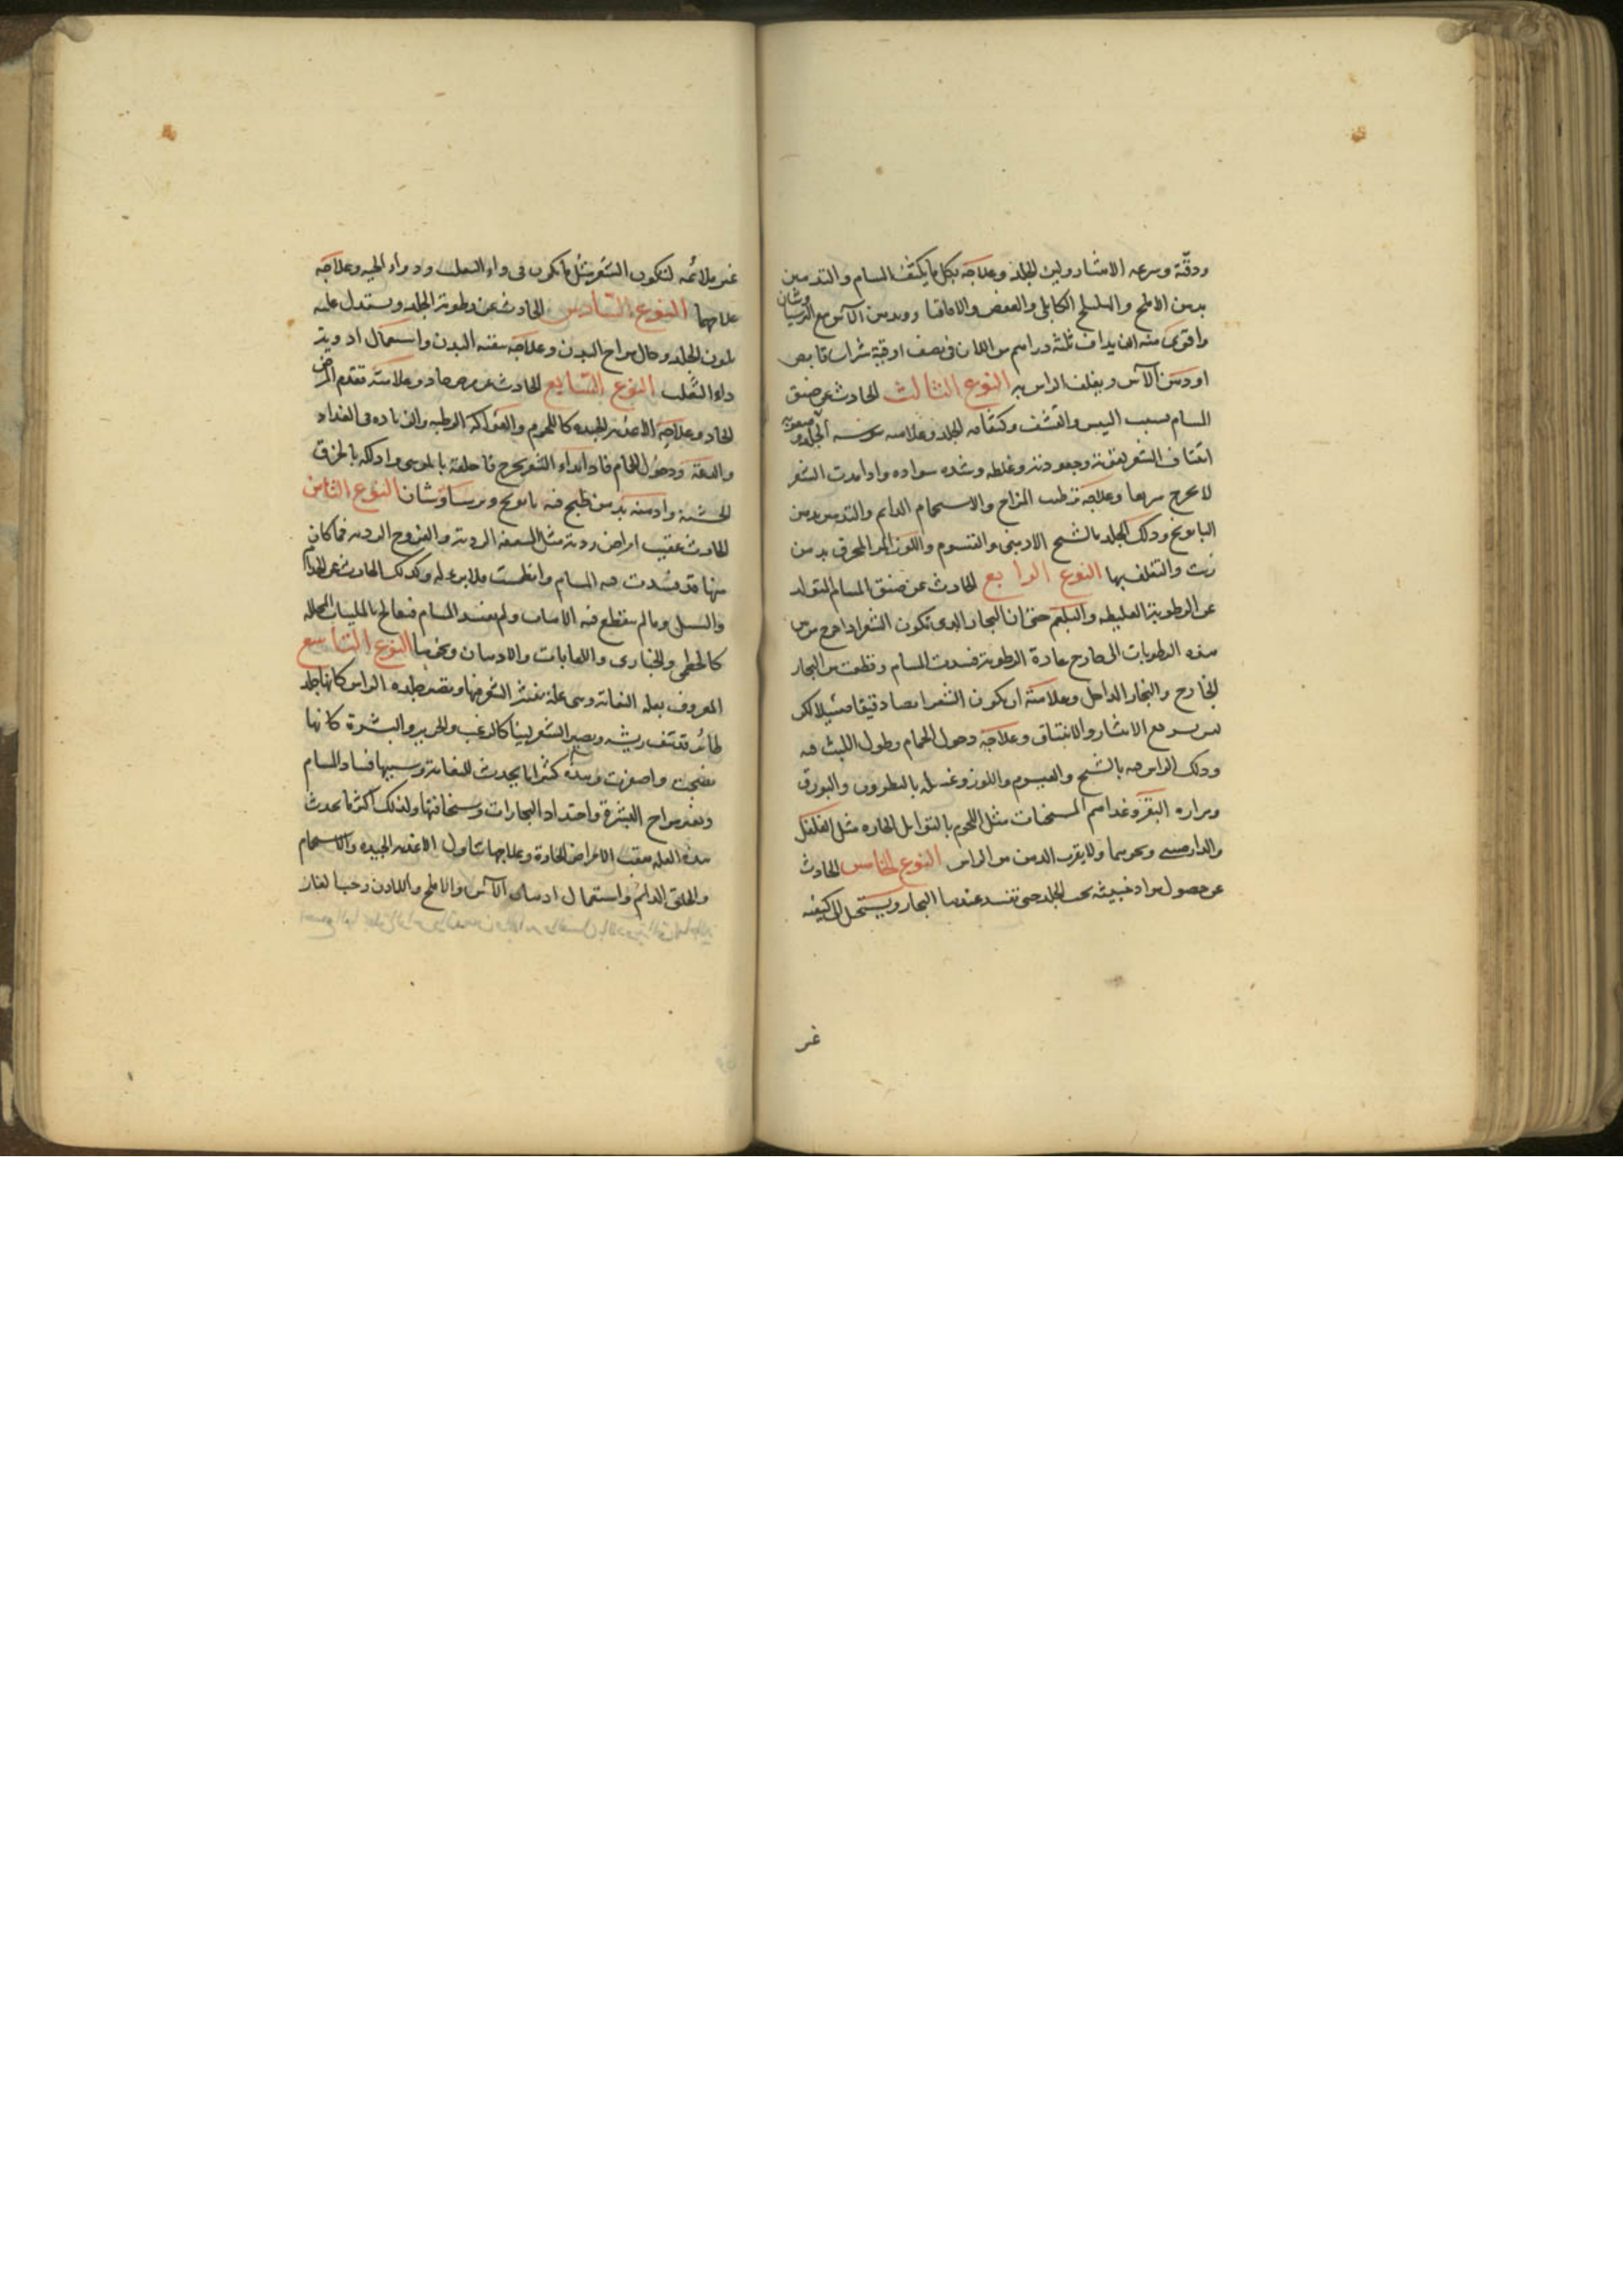 ودقته وسرعه الانتثار ولين الجلد وعلاجه بكل ما يكثف المسام والتدهين
بدهن الاملج والهليلج الكابلى والعفص والاقاقيا ودهن الآس مع البرسياوشان
واقوى منه ان يداف ثلثة دراهم من اللادن فى نصف اوقية شراب قابض
او دهن الآس ويغلف الراس به النوع الثالث الحادث عن ضيق
المسام بسبب اليبس والقشف وكثافه الجلد وعلامته يبوسه الجلد وصعوبة
انتتاف الشعر بقوته وجعودته وغلظه وشده سواده واذا نبت الشعر
لا يخرج سريعا وعلاجه ترطيب المزاج والاستحمام الدائم والتدهين بدهن
البابونج ودلك الجلد بالشيح الارمنى والقيسوم واللوز المر المحرق بدهن
زيت والتغلف بها النوع الرابع الحادث عن ضيق المسام المتولد
عن الرطوبة الغليظه والبلغم حتى ان البخار الذى تكون الشعر اذا خرج من بين
هذه الرطوبات الى خارج عادة الرطوبة فسدت المسام وقطعت بين البخار
الخارج والبخار الداخل وعلامته ان يكون الشعر ايضا دقيقا قليلا لكن
ليس يسرع الانتثار والانتتاف وعلاجه دخول الحمام وطول اللبث فيه
ودلك الراس فيه بالشيح والقيسوم واللوز وغسله بالنطرون والبورق
ومراره البقر وغذاهم المسخنات مثل اللحوم بالتوابل الحاره مثل الفلفل
والدارصينى ونحوهما ولا يقرب الدهن من الراس النوع الخامس الحادث
عن حصول مواد خبيثه تحت الجلد حتى تفسد عندها البخار ويستحيل الى كيفيه
غير
غير ملائمه لتكون الشعر مثل ما يكون فى داء الثعلب وداء الحيه وعلاجه
علاجهما النوع السادس الحادث عن رطوبة الجلد ويستدل عليه
بلون الجلد وحال مزاج البدن وعلاجه تنقيه البدن واستعمال ادوية
داء الثعلب النوع السابع الحادث عن مرض حاد وعلامته تقدم المرض
الحاد وعلاجه الاغذيه الجيده كاللحوم والفواكه الرطبه والزياده فى الغذاء
والدعة ودخول الحمام فاذا ابتداء الشعر يخرج فاحلقه بالموسى وادلكه بالخرق
الخشنة وادهنه بدهن طبخ فيه بابونج وبرسياوشان النوع الثامن
الحادث عقيب امراض ردية مثل السعفه الردية والقروح الرديه فما كان
منها قد فسدت فيه المسام وانطمست فلا برء له وكذلك الحادث عن الجذام
والسل وما لم ينقطع فيه الانبات ولم يفسد المسام فيعالج بالملينات المحلله
كالخطمى والخبازى واللعابات والادهان ونحوها النوع التاسع
المعروف بعله النعامة وهى علة ينتثر الشعر فيها وتصير جلده الراس كانها جلد
طائر قد نتف ريشه ويصير الشعر لينا كالزغب والحرير والبشرة كانها
نضجت واصفرت وهذه كثيرا ما يحدث للنعامة وسببها فساد المسام
وتغير مزاج البشرة واحتداد البخارات وسخافتها ولذلك اكثر ما يحدث
هذه العله بعقب الامراض الحادة وعلاجها تناول الاغذيه الجيده والاستحمام
والحلق الدائم واستعمال ادهان الآس والاملج واللادن وحب الغار